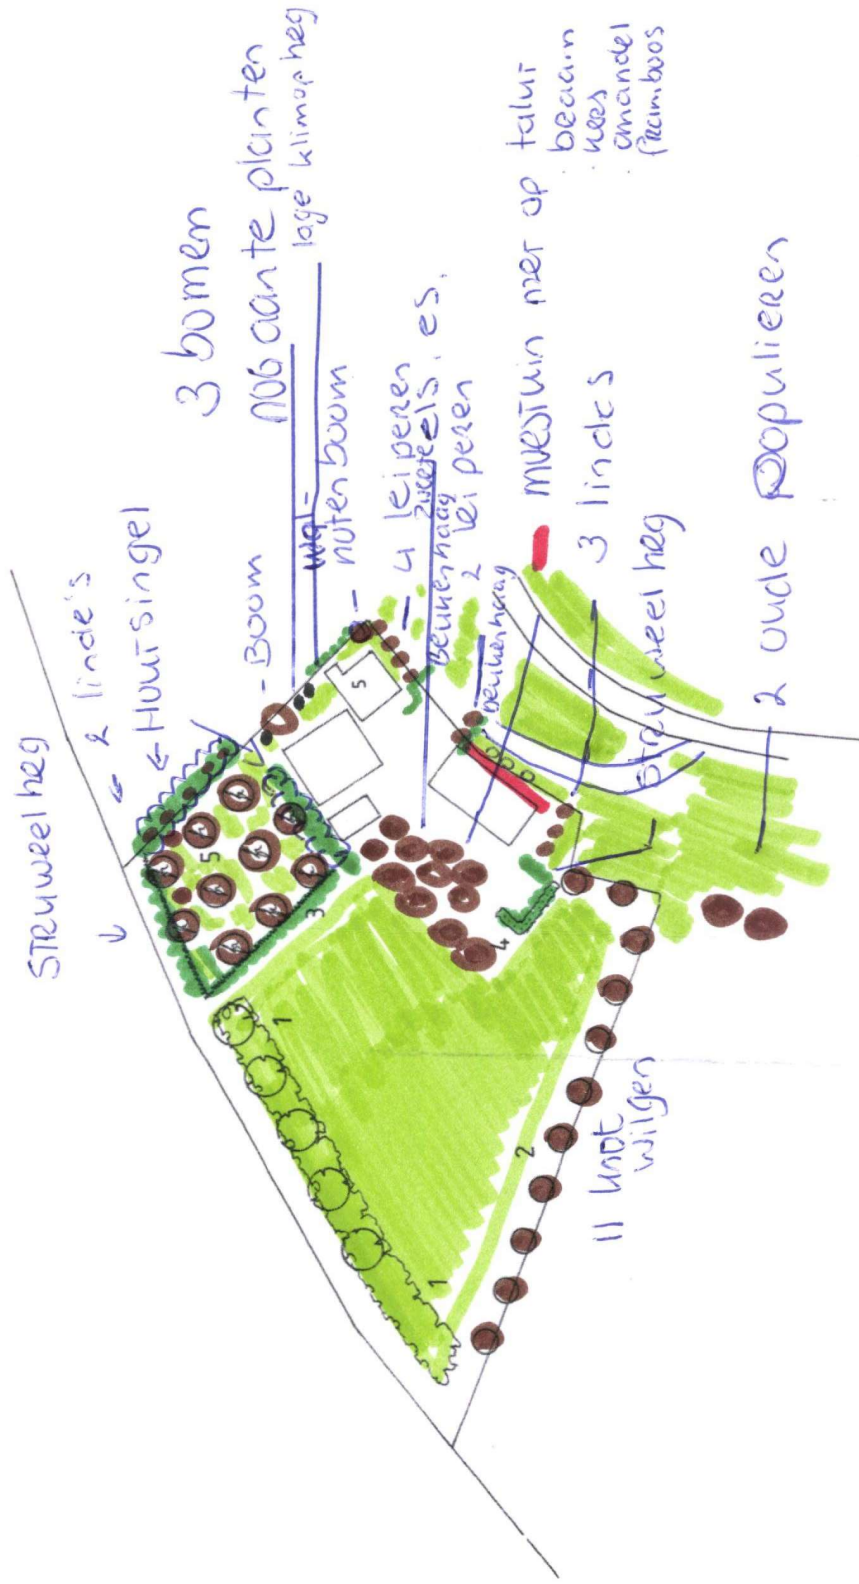 STRUWEELheg
← 2 linde's
← Houtsingel
- BOOM
3 bomen
nog aan te planten
lage klimop heg
wal-
noten boom
- 4 leiperen
zwarte els, es.
Beukenhaag
2
lei peren
beukenhaag
moestuin met op talut
beaam
kers
amandel
framboos
3 lindes
Struweel heg
2 oude populieren
11 knot
wilgen
1
1
2
3
4
5
5